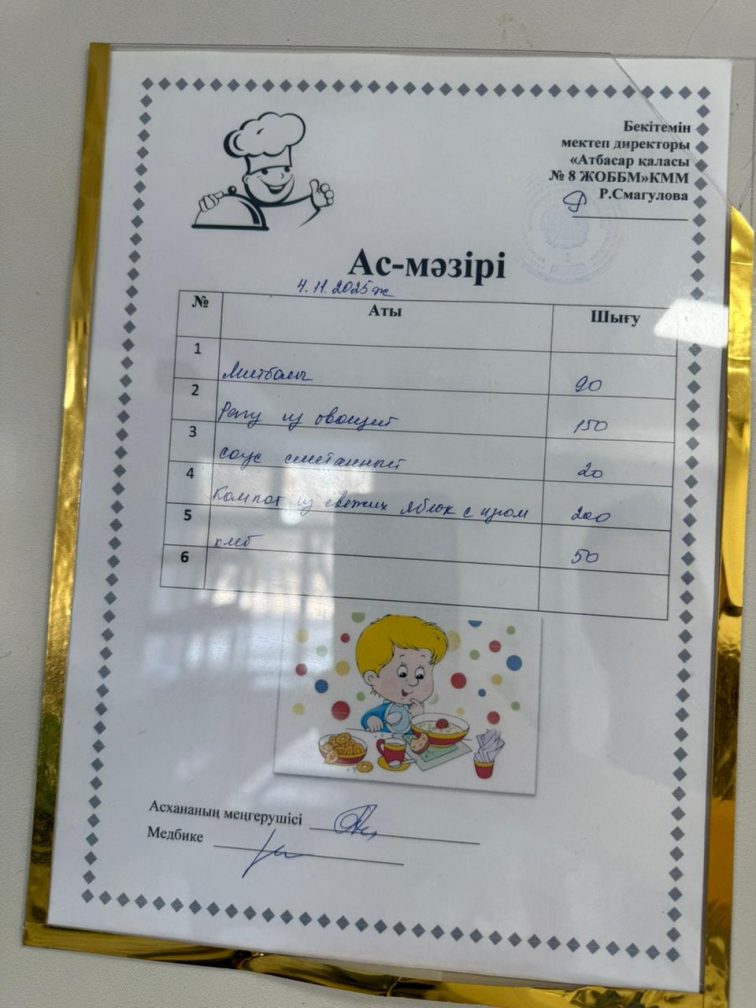 Бекітемін
мектеп директоры
«Атбасар қаласы
№ 8 ЖОББМ»КММ
Р.Смагулова
Ас-мәзірі
4.11.2025ж
№ Аты Шығу
1 Митболы 90
2 Рагу из овощей 150
3 соус сметанный 20
4 Компот из свежих яблок с изюм 200
5 хлеб 50
6
Асхананың меңгерушісі
Медбике